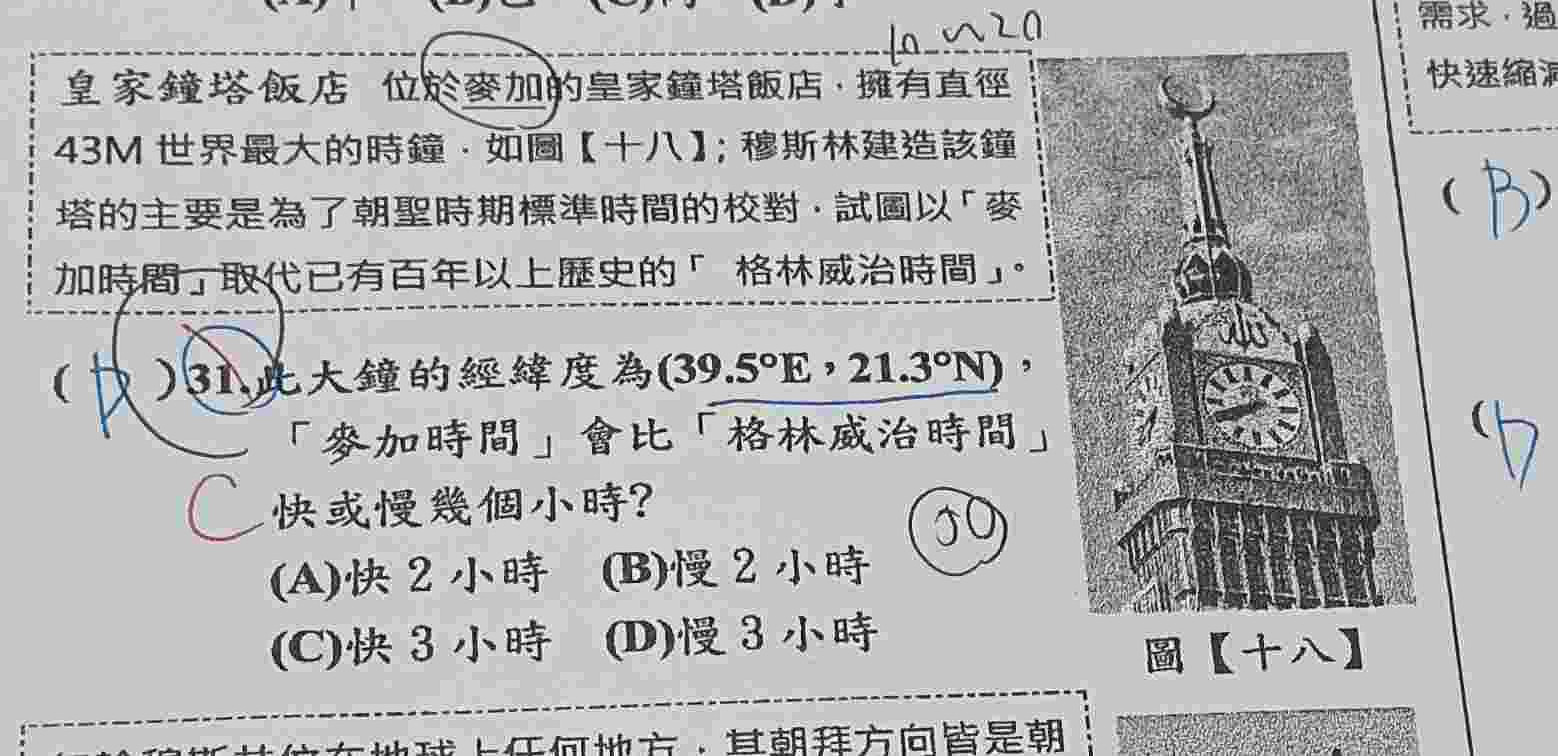 需求，過
快速縮減
皇家鐘塔飯店 位於麥加的皇家鐘塔飯店，擁有直徑
43M 世界最大的時鐘，如圖【十八】；穆斯林建造該鐘
塔的主要是為了朝聖時期標準時間的校對，試圖以「麥
加時間」取代已有百年以上歷史的「 格林威治時間」。
( D )31.此大鐘的經緯度為(39.5°E，21.3°N)，
「麥加時間」會比「格林威治時間」
C 快或慢幾個小時?
(A)快 2 小時 (B)慢 2 小時
(C)快 3 小時 (D)慢 3 小時
圖【十八】
(B)
(D
任何地方，其朝拜方向皆是朝